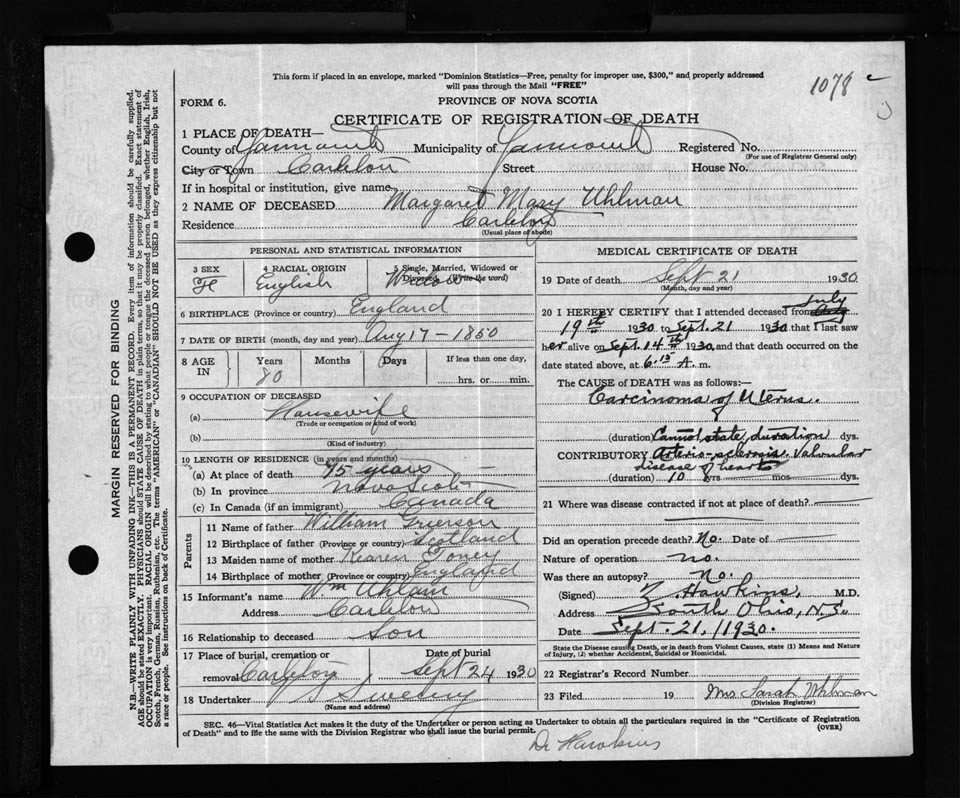 This form if placed in an envelope, marked "Dominion Statistics—Free, penalty for improper use, $300," and properly addressed
will pass through the Mail "FREE"
1078
FORM 6.
PROVINCE OF NOVA SCOTIA
CERTIFICATE OF REGISTRATION OF DEATH
1 PLACE OF DEATH—
County of Yarmouth Municipality of Yarmouth Registered No.
(For use of Registrar General only)
City or Town Carleton Street House No.
If in hospital or institution, give name
2 NAME OF DECEASED Margaret Mary Uhlman
Residence Carleton
(Usual place of abode)
PERSONAL AND STATISTICAL INFORMATION
3 SEX 4 RACIAL ORIGIN 5 Single, Married, Widowed or Divorced (Write the word)
English Widow
6 BIRTHPLACE (Province or country) England
7 DATE OF BIRTH (month, day and year) Aug 17 - 1850
8 AGE IN Years Months Days If less than one day,
80 hrs. or min.
9 OCCUPATION OF DECEASED
(a) Housewife
(Trade or occupation or kind of work)
(b)
(Kind of industry)
10 LENGTH OF RESIDENCE (in years and months)
(a) At place of death 75 years
(b) In province Nova Scotia
(c) In Canada (if an immigrant) Canada
Parents
11 Name of father William Grierson
12 Birthplace of father (Province or country) Scotland
13 Maiden name of mother Toney
14 Birthplace of mother (Province or country) England
15 Informant's name Wm Uhlam
Address Carleton
16 Relationship to deceased Son
17 Place of burial, cremation or Date of burial
removal Carleton Sept 24 1930
18 Undertaker Sweeny
(Name and address)
MEDICAL CERTIFICATE OF DEATH
19 Date of death Sept 21 1930
(Month, day and year)
July
20 I HEREBY CERTIFY that I attended deceased from
19th 1930 to Sept. 21 1930 that I last saw
her alive on Sept. 14th 1930, and that death occurred on
date stated above, at 6.15 A. m.
The CAUSE OF DEATH was as follows:—
Carcinoma of Uterus.
(duration) Cannot state duration dys.
CONTRIBUTORY Arterio-sclerosis. Valvular
disease of heart
(duration) 10 yrs mos. dys.
21 Where was disease contracted if not at place of death?
Did an operation precede death? No. Date of
Nature of operation no.
Was there an autopsy? No.
(Signed) Z. Hawkins, M.D.
Address South Ohio, N.S.
Date Sept. 21, /1930.
State the Disease causing Death, or in death from Violent Causes, state (1) Means and
Nature of Injury, (2) whether Accidental, Suicidal or Homicidal.
22 Registrar's Record Number
23 Filed 19 Mrs Sarah Uhlman
(Division Registrar)
SEC. 46—Vital Statistics Act makes it the duty of the Undertaker or person acting as Undertaker to obtain all the particulars required in the "Certificate of Registration
of Death" and to file the same with the Division Registrar who shall issue the burial permit.
(OVER)
Dr Hawkins
MARGIN RESERVED FOR BINDING
N.B.—WRITE PLAINLY WITH UNFADING INK—THIS IS A PERMANENT RECORD. Every item of information should be carefully supplied.
AGE should be stated EXACTLY. PHYSICIANS should STATE CAUSE OF DEATH in plain terms, so that it may be properly classified. Exact statement of
OCCUPATION is very important. RACIAL ORIGIN will be described by stating to what people or tongue the deceased person belonged, whether English, Irish,
Scotch, French, German, Russian, Ruthenian, etc. The terms "AMERICAN" or "CANADIAN" SHOULD NOT BE USED as they express citizenship but not
a race or people. See instructions on back of Certificate.